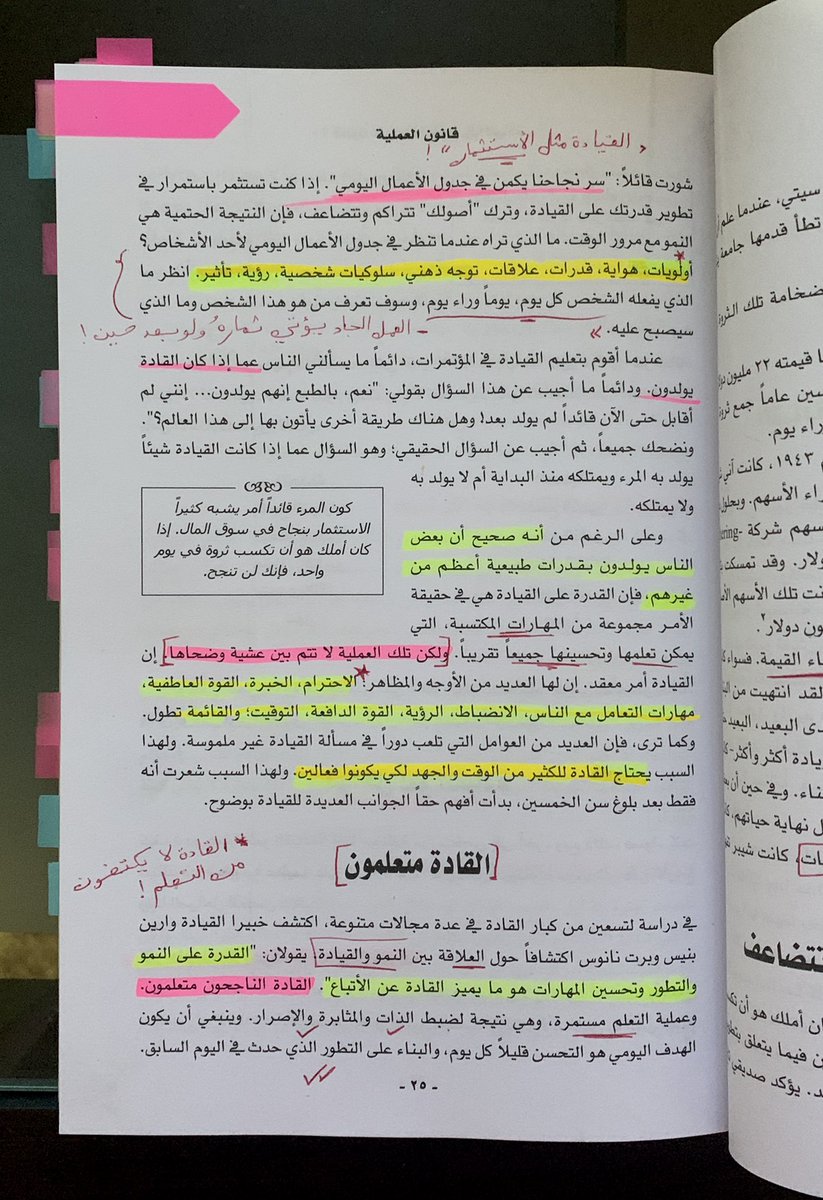 قانون العملية
« القيادة مثل الاستثمار » !
شورت قائلاً: "سر نجاحنا يكمن في جدول الأعمال اليومي". إذا كنت تستثمر باستمرار في
تطوير قدرتك على القيادة، وترك "أصولك" تتراكم وتتضاعف، فإن النتيجة الحتمية هي
النمو مع مرور الوقت. ما الذي تراه عندما تنظر في جدول الأعمال اليومي لأحد الأشخاص؟
أولويات، هواية، قدرات، علاقات، توجه ذهني، سلوكيات شخصية، رؤية، تأثير. انظر ما
الذي يفعله الشخص كل يوم، يوماً وراء يوم، وسوف تعرف من هو هذا الشخص وما الذي
سيصبح عليه.
- العمل الجاد يؤتي ثماره ولو بعد حين !
عندما أقوم بتعليم القيادة في المؤتمرات، دائماً ما يسألني الناس عما إذا كان القادة
يولدون. ودائماً ما أجيب عن هذا السؤال بقولي: "نعم، بالطبع إنهم يولدون... إنني لم
أقابل حتى الآن قائداً لم يولد بعد! وهل هناك طريقة أخرى يأتون بها إلى هذا العالم؟".
ونضحك جميعاً، ثم أجيب عن السؤال الحقيقي؛ وهو السؤال عما إذا كانت القيادة شيئاً
يولد به المرء ويمتلكه منذ البداية أم لا يولد به
ولا يمتلكه.
كون المرء قائداً أمر يشبه كثيراً
الاستثمار بنجاح في سوق المال. إذا
كان أملك هو أن تكسب ثروة في يوم
واحد، فإنك لن تنجح.
وعلى الرغم من أنه صحيح أن بعض
الناس يولدون بقدرات طبيعية أعظم من
غيرهم، فإن القدرة على القيادة هي في حقيقة
الأمر مجموعة من المهارات المكتسبة، التي
يمكن تعلمها وتحسينها جميعاً تقريباً. ولكن تلك العملية لا تتم بين عشية وضحاها. إن
القيادة أمر معقد. إن لها العديد من الأوجه والمظاهر: الاحترام، الخبرة، القوة العاطفية،
مهارات التعامل مع الناس، الانضباط، الرؤية، القوة الدافعة، التوقيت؛ والقائمة تطول.
وكما ترى، فإن العديد من العوامل التي تلعب دوراً في مسألة القيادة غير ملموسة. ولهذا
السبب يحتاج القادة للكثير من الوقت والجهد لكي يكونوا فعالين. ولهذا السبب شعرت أنه
فقط بعد بلوغ سن الخمسين، بدأت أفهم حقاً الجوانب العديدة للقيادة بوضوح.
* القادة لا يكتفون
من التعلم !
[القادة متعلمون]
في دراسة لتسعين من كبار القادة في عدة مجالات متنوعة، اكتشف خبيرا القيادة وارين
بنيس وبرت نانوس اكتشافاً حول العلاقة بين النمو والقيادة، يقولان: "القدرة على النمو
والتطور وتحسين المهارات هو ما يميز القادة عن الأتباع". القادة الناجحون متعلمون.
وعملية التعلم مستمرة، وهي نتيجة لضبط الذات والمثابرة والإصرار. وينبغي أن يكون
الهدف اليومي هو التحسن قليلاً كل يوم، والبناء على التطور الذي حدث في اليوم السابق.
- ٢٥ -
سيتي، عندما علم
تطأ قدمها جامعة
ضخامة تلك
ما قيمته ٢٢ مليون
سين عاماً جمع
راء يوم.
١٩٤٣، كانت آني
راء الأسهم.
سهم شركة
لار. وقد تمسكت
نت تلك الأسهم
ون دولار".٢
ء القيمة. فسواء
لقد انتهيت من
دى البعيد،
يادة أكثر وأكثر-
ناء. وفي حين أن
ل نهاية حياتهم،
ات، كانت شيبر
تتضاعف
ان أملك هو أن
ن فيما يتعلق
د. يؤكد صديقي